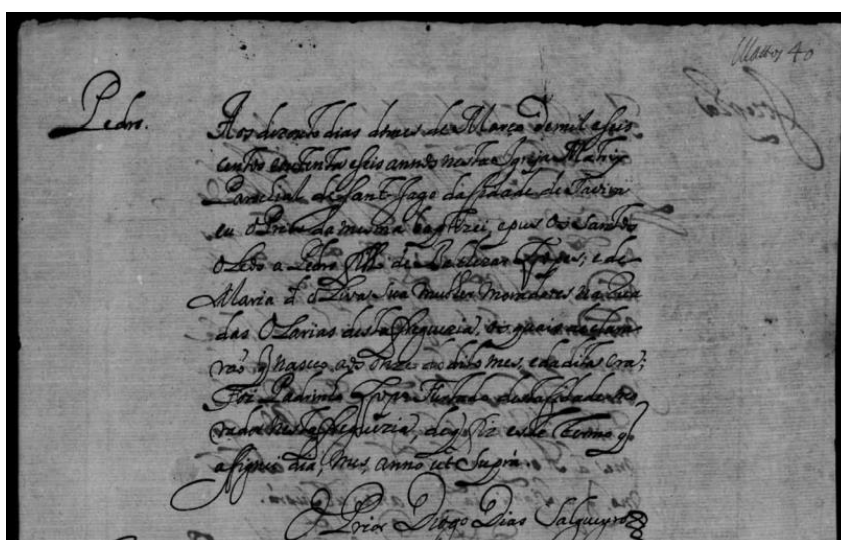 Mattos 40
Pedro.
Aos dezouto dias do mes de Março de mil e seis
centos e setenta e seis annos nesta Igreja Matriz
Parochial de Sant-Iago da Cidade de Tavira
eu o Prior da mesma baptizei, e pus os Santos
Oleos a Pedro filho de Baltezar Lopes, e de
Maria d' Oliva sua mulher moradores na Rua
das Olarias desta freguezia, os quais declara
rão q nasceo aos onze do dito mes, e da dita era;
Foi Padrinho Furtado desta Cidade mo
rador nesta freguezia, de q fiz este termo q
assignei dia, mes, anno ut supra.
O Prior Diogo Dias Salgueyro